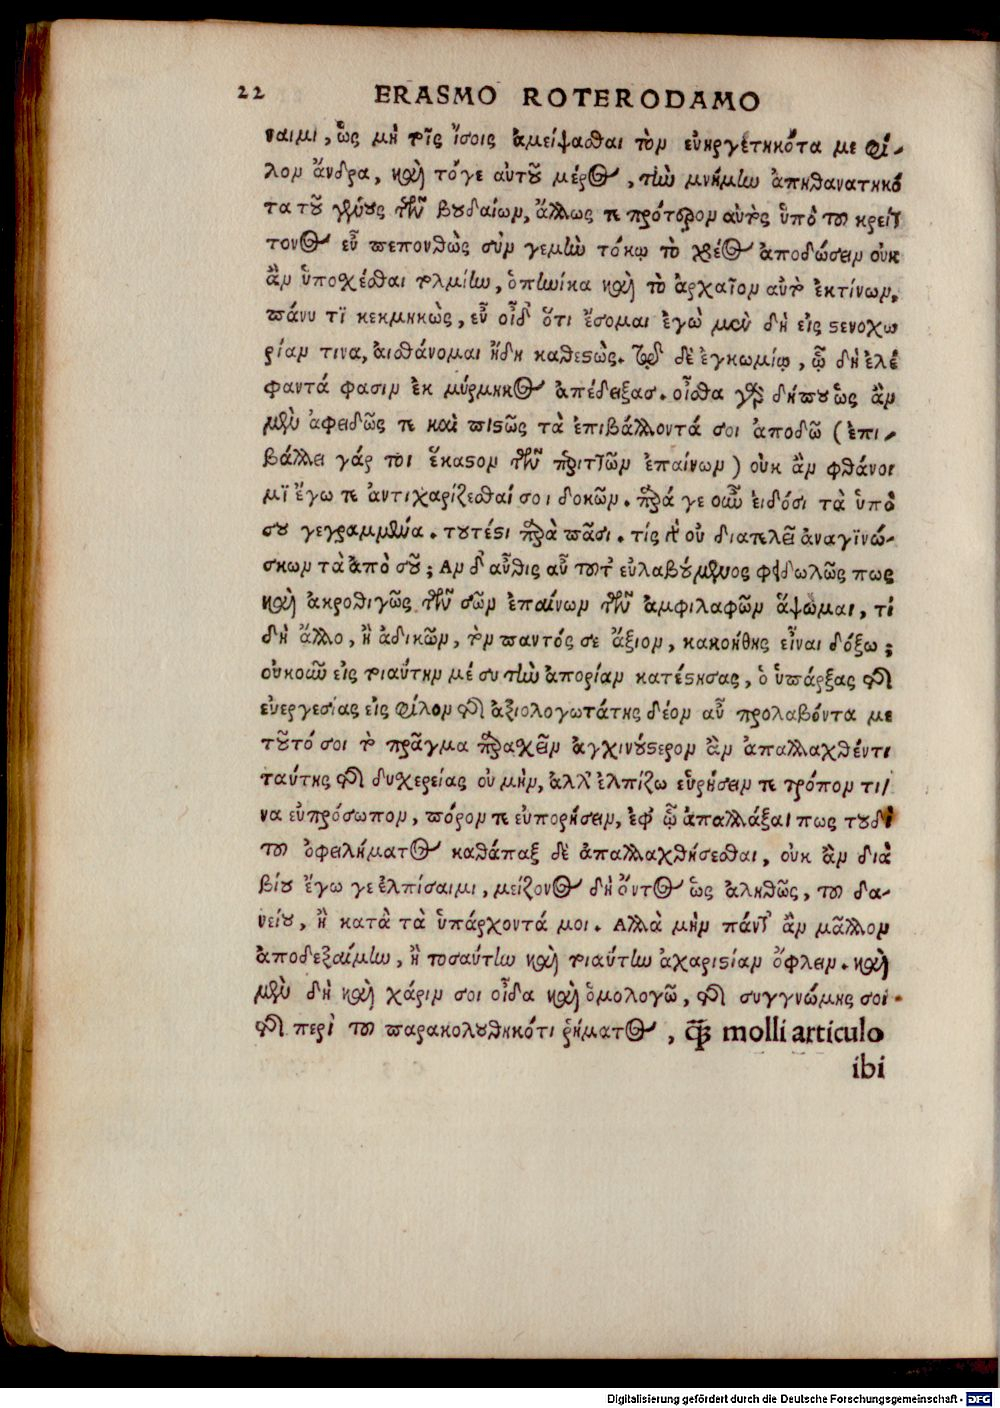 22 ERASMO ROTERODAMO
ναιμι, ὡς μὴ τοῖς ἴσοις ἀμείψασθαι τὸν εὐηργετηκότα με φί-
λον ἄνδρα, καὶ τόγε αὐτοῦ μέρος, τὴν μνήμην ἀπηθανατηκό
τα τοῦ γένους τῶν βουδαίων, ἄλλως τε πρότερον αὐτὸς ὑπὸ τοῦ κρείτ
τονος εὖ πεπονθὼς σὺν γεμὼ τόκῳ τὸ χρέος ἀποδώσειν οὐκ
ἂν ὑποχέσθαι τολμῴην, ὁπηνίκα καὶ τὸ ἀρχαῖον αὐτὸ ἐκτίνων,
πάνυ τϊ κεκμηκὼς, εὖ οἶδ' ὅτι ἔσομαι ἐγὼ μὲν δὴ εἰς στενοχω
ρίαν τινα, αἰσθάνομαι ἤδη καθεστὼς. τῷ δὲ ἐγκωμίῳ, ᾧ δὴ ἐλέ
φαντά φασιν ἐκ μύρμηκος ἀπέδειξας. οἶσθα γὰρ δήπου ὡς ἂν
μὲν ἀφειδῶς τε καὶ πιστῶς τὰ ἐπιβάλλοντά σοι ἀποδῶ (ἐπι-
βάλλει γάρ τοι ἕκαστον τῶν περιττῶν ἐπαίνων) οὐκ ἂν φθάνοι
μϊ ἔγω τε ἀντιχαρίζεσθαί σοι δοκῶν. παρά γε οὖν εἰδόσι τὰ ὑπὸ
σου γεγραμμένα. τουτέστι παρὰ πᾶσι. τίς γὰρ οὐ διατελεῖ ἀναγϊνώ-
σκων τὰ ἀπὸ σοῦ; Αν δ' αὖθις αὖ τοῦτ' εὐλαβούμενος φειδωλῶς πως
καὶ ἀκροθιγῶς τῶν σῶν ἐπαίνων τῶν ἀμφιλαφῶν ἅψωμαι, τί
δὴ ἄλλο, ἢ ἀδικῶν, τὸν παντός σε ἄξιον, κακοήθης εἶναι δόξω;
οὐκοῦν εἰς τοιαύτην μέ συ τὴν ἀπορίαν κατέστησας, ὁ ὑπάρξας τῆς
εὐεργεσίας εἰς φίλον τῆς ἀξιολογωτάτης δέον αὖ προλαβόντα με
τοῦτό σοι τὸ πρᾶγμα παρασχεῖν ἀγχινούστερον ἂν ἀπαλλαχθέντι
ταύτης τῆς δυσχερείας οὐ μὴν, ἀλλ' ἐλπίζω εὑρήσειν τε τρόπον τι/
να εὐπρόσωπον, πόρον τε εὐπορήσειν, ἐφ' ᾧ ἀπαλλάξαι πως τουδὶ
τοῦ ὀφειλήματος καθάπαξ δὲ ἀπαλλαχθήσεσθαι, οὐκ ἂν διὰ
βίου ἔγω γε ἐλπίσαιμι, μείζονος δὴ ὄντος ὡς ἀληθῶς, τοῦ δα-
νείου, ἢ κατὰ τὰ ὑπάρχοντά μοι. Αλλὰ μὴν πάντ' ἂν μᾶλλον
ἀποδεξαίμην, ἢ τοσαύτην καὶ τοιαύτην ἀχαριστίαν ὄφλειν. καὶ
μὲν δὴ καὶ χάριν σοι οἶδα καὶ ὁμολογῶ, τῆς συγγνώμης σοι
τῆς περὶ τοῦ παρακολουθηκότι ῥήματος, quod molli articulo
ibi
Digitalisierung gefördert durch die Deutsche Forschungsgemeinschaft - DFG